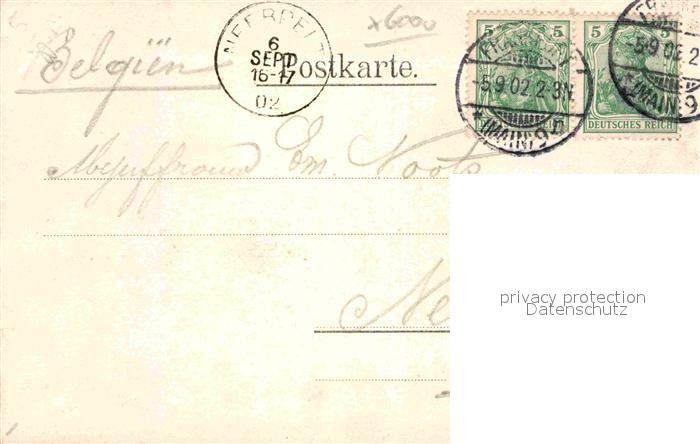 x6000
5 5
NEERPELT
6
SEPT
16-17
02
Postkarte.
Belgiën
FRANKFURT
5.9.02.2-3N.
* (MAIN) 9
DEUTSCHES REICH
-5.9.02.2
* (MAIN) 9
Mejuffrouw Em. Noots
Ne
privacy protection
Datenschutz